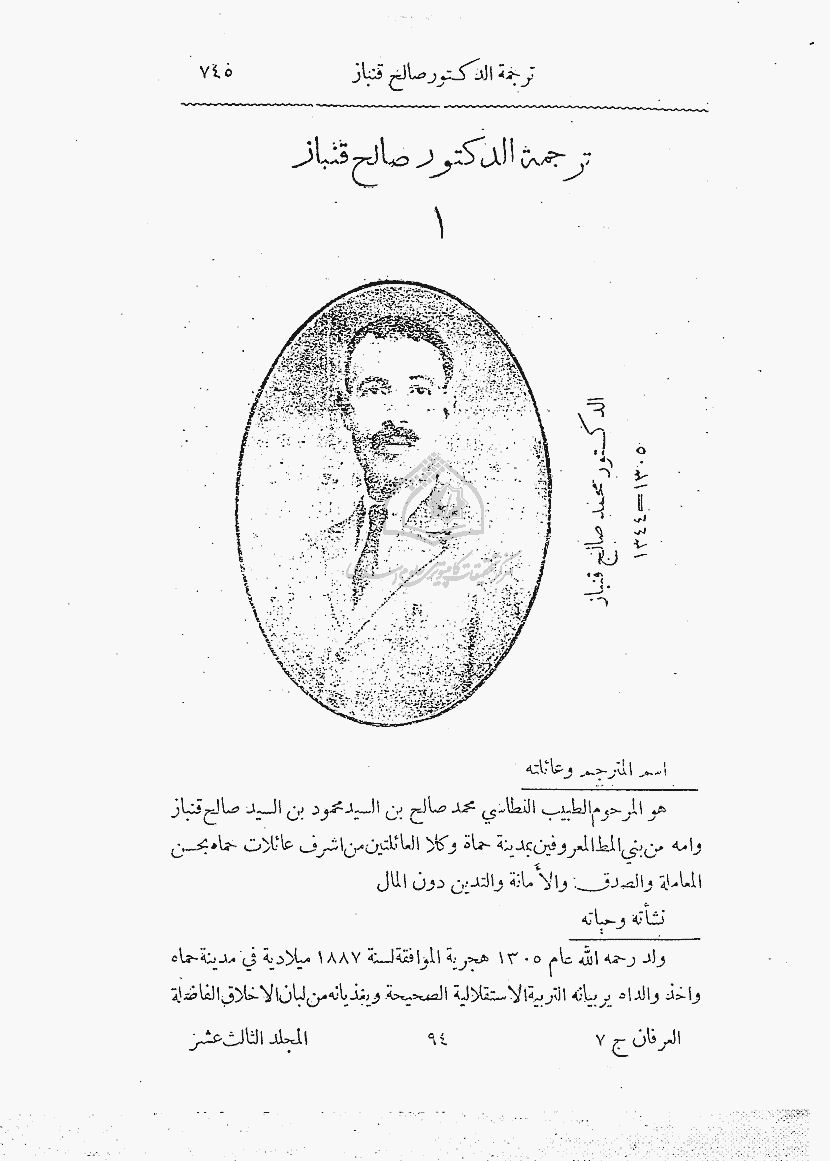 ترجمة الدكتور صالح قنباز ٧٤٥
ترجمة الدكتور صالح قنباز
١
الدكتور محمد صالح قنباز
١٣٠٥ = ١٣٤٤
اسم المترجم وعائلته
هو المرحوم الطبيب النطاسي محمد صالح بن السيد محمود بن السيد صالح قنباز
وامه من بني المط المعروفين بمدينة حماة وكلا العائلتين من اشرف عائلات حماه بحسن
المعاملة والصدق والأمانة والتدين دون المال
نشأته وحياته
ولد رحمه الله عام ١٣٠٥ هجرية الموافقة لسنة ١٨٨٧ ميلادية في مدينة حماه
واخذ والداه يربيانه التربية الاستقلالية الصحيحة ويغذيانه من لبان الاخلاق الفاضلة
العرفان ج ٧ ٩٤ المجلد الثالث عشر